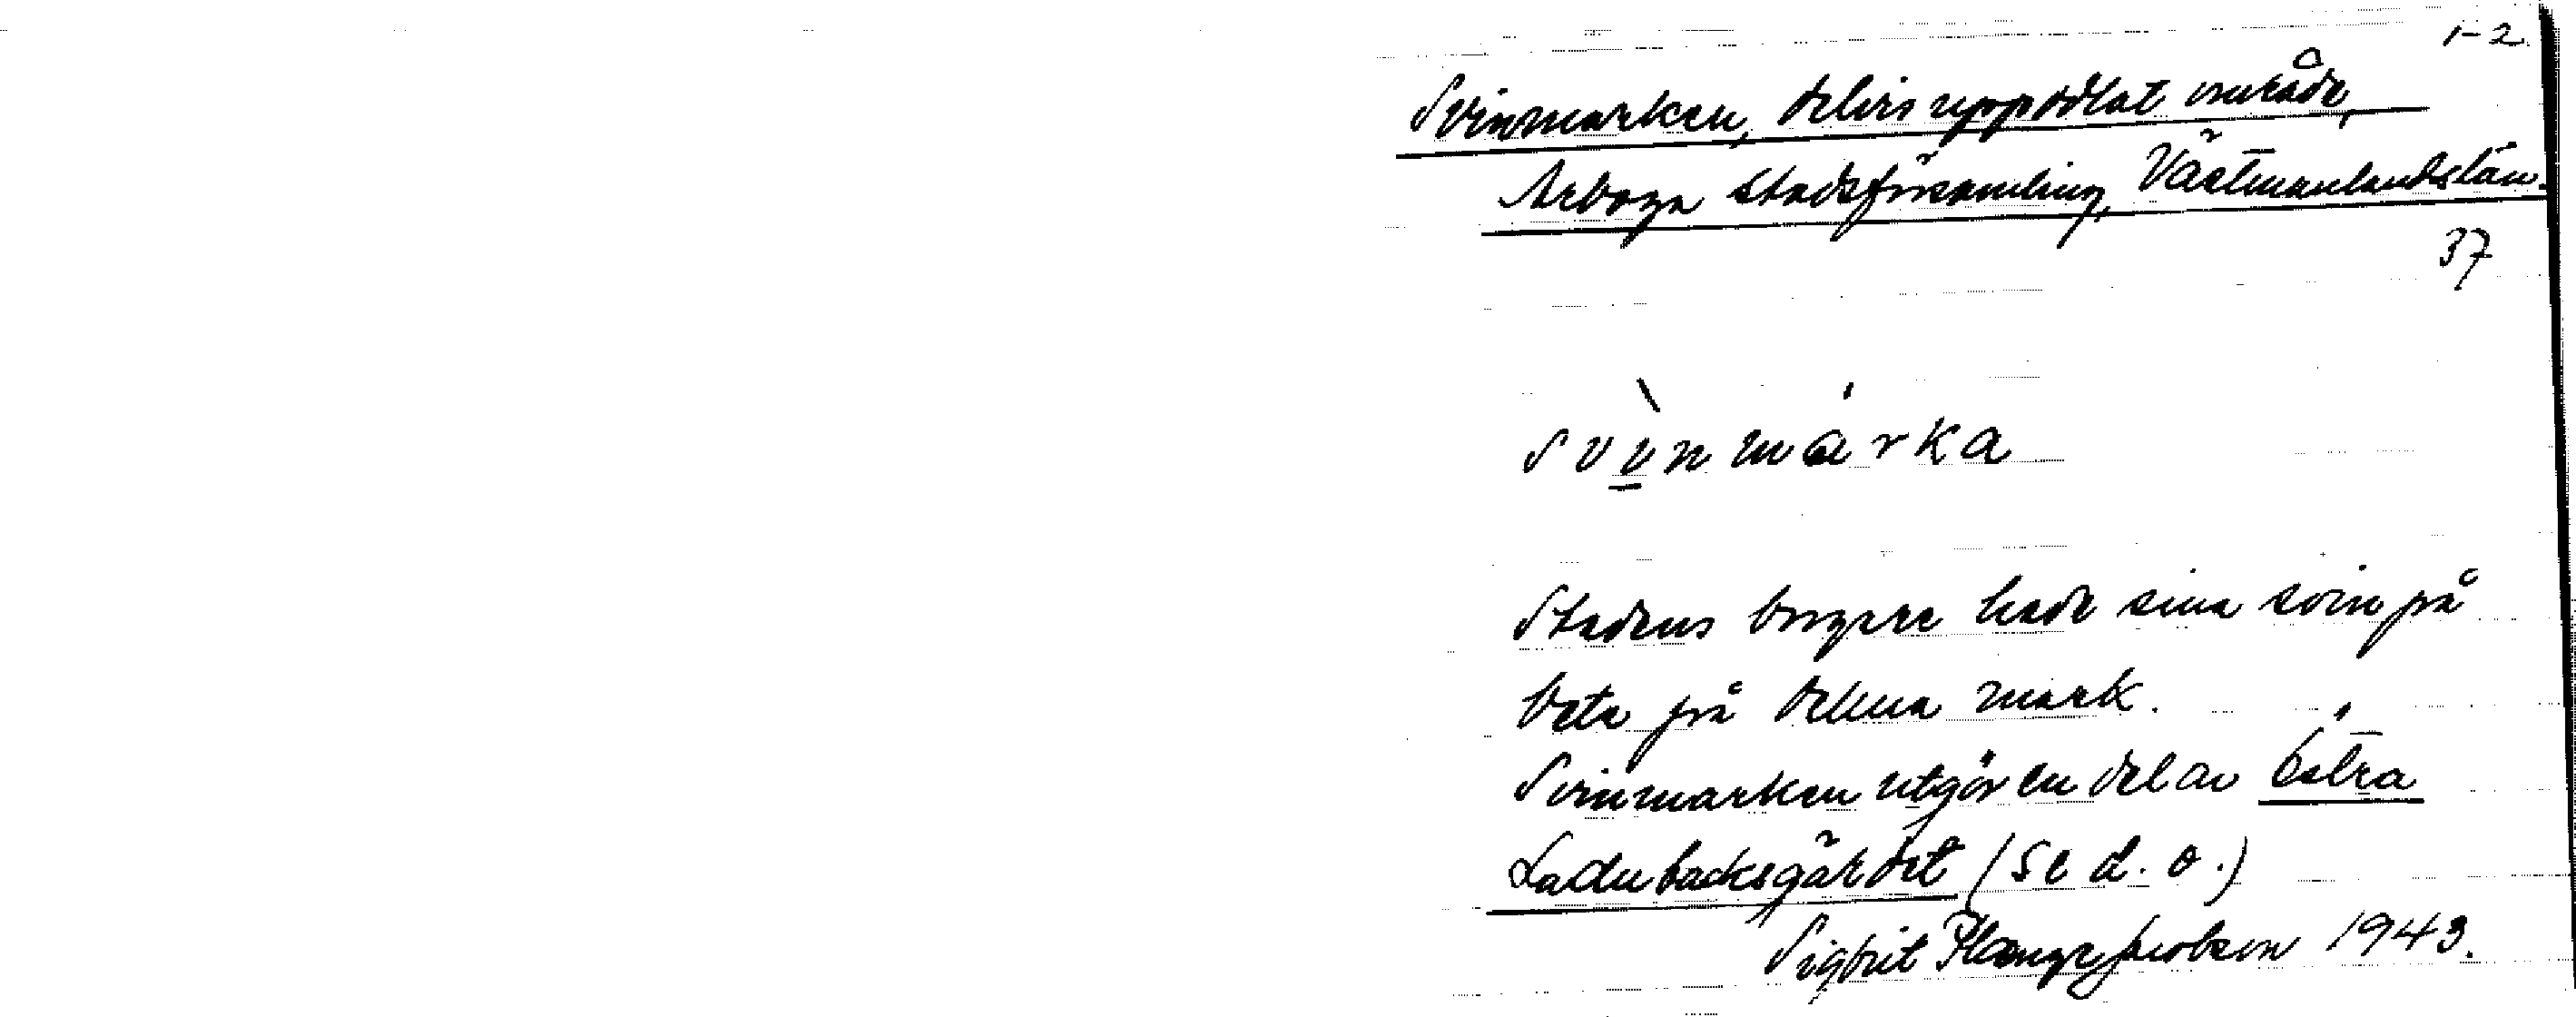 1-2.
Svinmarken, delvis uppodlat område,
Arboga stadsförsamling, Västmanlands län.
37
Svinmarka
Stadens borgare hade sina svin på
bete på denna mark.
Svinmarken utgör en del av Östra
Ladubacksgärdet (se d. o.)
Sigbrit Plænge Jacobson 1943.